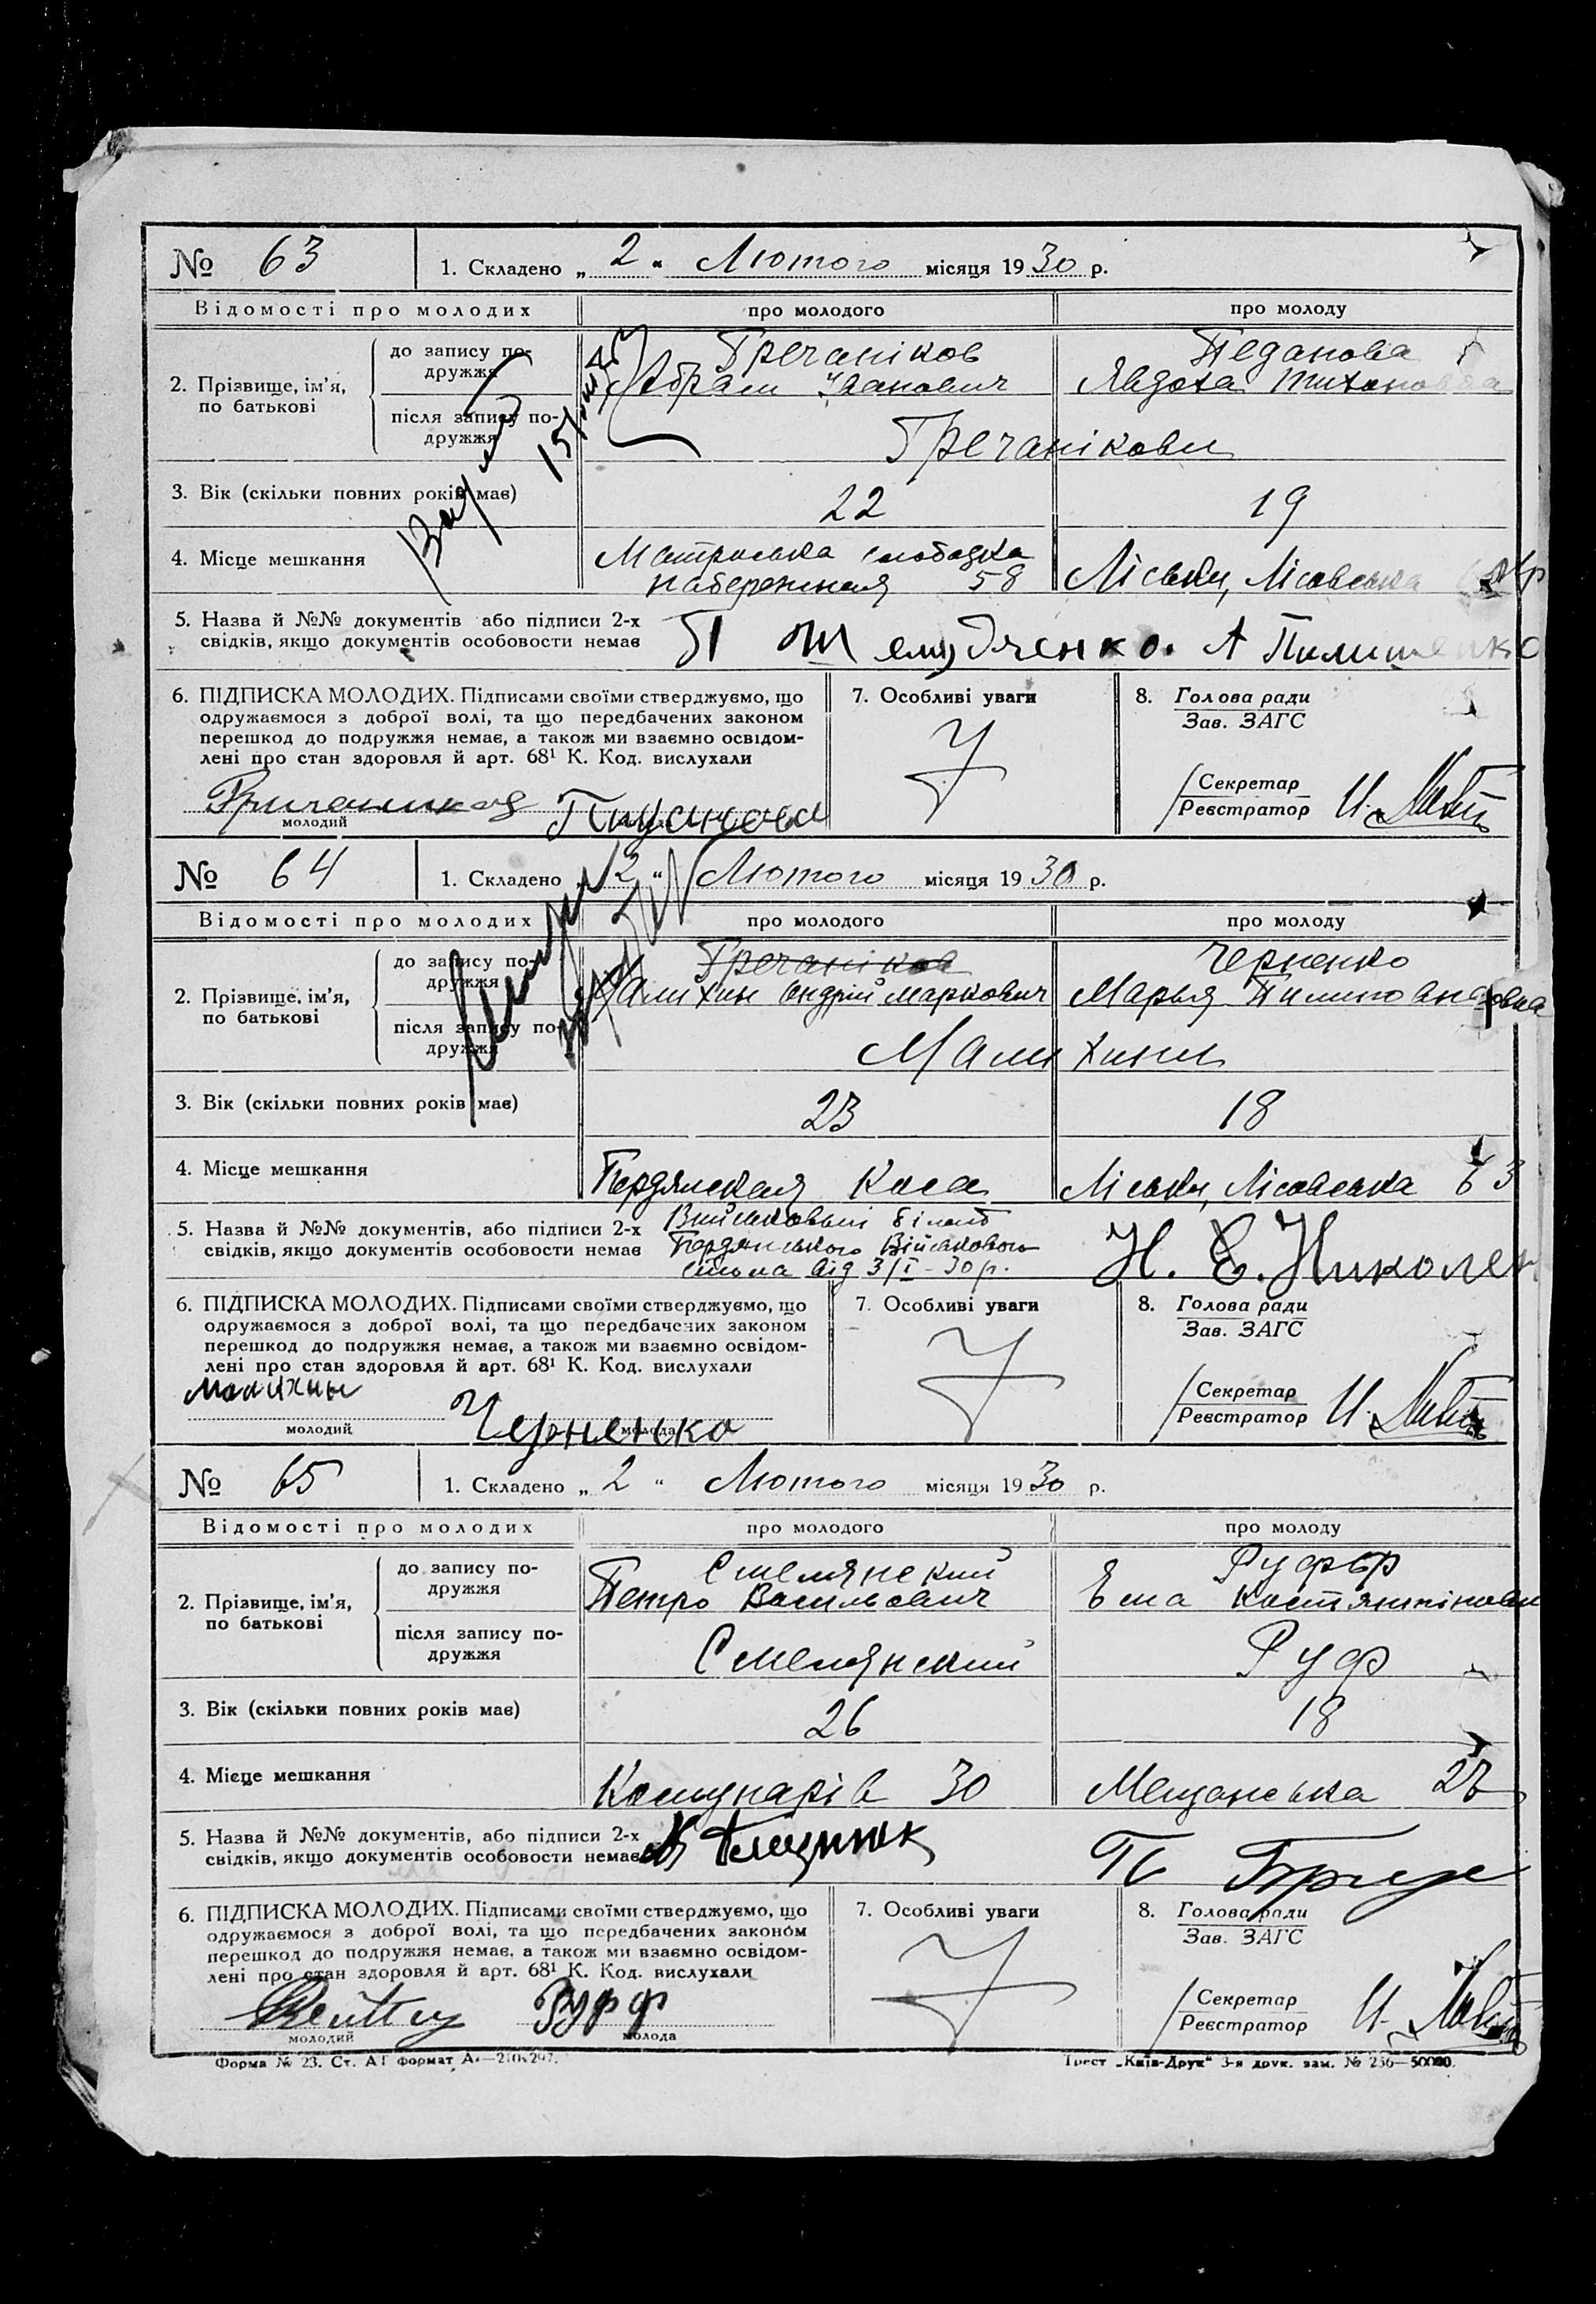 № 63 1. Складено „ 2 “ Лютого місяця 1930 р.
Відомості про молодих про молодого про молоду
2. Прізвище, ім’я, по батькові
до запису по-
дружжя
Гречаніков Педанова
Абрам Іванович Явдоха Тихоновна
після запису по-
дружжя
Гречанікови
3. Вік (скільки повних років має) 22 19
4. Місце мешкання
слободка
набережная 58 Ліськи, Лісовська
5. Назва й №№ документів або підписи 2-х
свідків, якщо документів особовости немає
А Пилипенко
6. ПІДПИСКА МОЛОДИХ. Підписами своїми стверджуємо, що
одружаємося з доброї волі, та що передбачених законом
перешкод до подружжя немає, а також ми взаємно освідом-
лені про стан здоровля й арт. 68¹ К. Код. вислухали
молодий
7. Особливі уваги
8. Голова ради
Зав. ЗАГС
Секретар
Реєстратор
№ 64 1. Складено „ 2 “ Лютого місяця 1930 р.
Відомості про молодих про молодого про молоду
2. Прізвище, ім’я,
по батькові
до запису по-
дружжя
Гречаніков Черненко
Малихин Андрій Маркович Марья
після запису по-
дружжя
Малихини
3. Вік (скільки повних років має) 23 18
4. Місце мешкання Бердянская Коса Ліськи, Лісовська 63
5. Назва й №№ документів, або підписи 2-х
свідків, якщо документів особовости немає
білет
Бердянського Військового
від 3/I-30 р.
Н. Е. Николен
6. ПІДПИСКА МОЛОДИХ. Підписами своїми стверджуємо, що
одружаємося з доброї волі, та що передбачених законом
перешкод до подружжя немає, а також ми взаємно освідом-
лені про стан здоровля й арт. 68¹ К. Код. вислухали
Малихин Черненко
молодий молода
7. Особливі уваги
8. Голова ради
Зав. ЗАГС
Секретар
Реєстратор
№ 65 1. Складено „ 2 “ Лютого місяця 1930 р.
Відомості про молодих про молодого про молоду
2. Прізвище, ім’я,
по батькові
до запису по-
дружжя
Смелянский
Петро Васильович Ема
після запису по-
дружжя
Смелянский Руф
3. Вік (скільки повних років має) 26 18
4. Місце мешкання Комунарів 30 Мещанська
5. Назва й №№ документів, або підписи 2-х
свідків, якщо документів особовости немає
6. ПІДПИСКА МОЛОДИХ. Підписами своїми стверджуємо, що
одружаємося з доброї волі, та що передбачених законом
перешкод до подружжя немає, а також ми взаємно освідом-
лені про стан здоровля й арт. 68¹ К. Код. вислухали
Руфф
молодий молода
7. Особливі уваги
8. Голова ради
Зав. ЗАГС
Секретар
Реєстратор
Форма № 23. Ст. А1 формат А₄—210х297.
Трест „Київ-Друк“ 3-я друк. зам. № 256—50000.